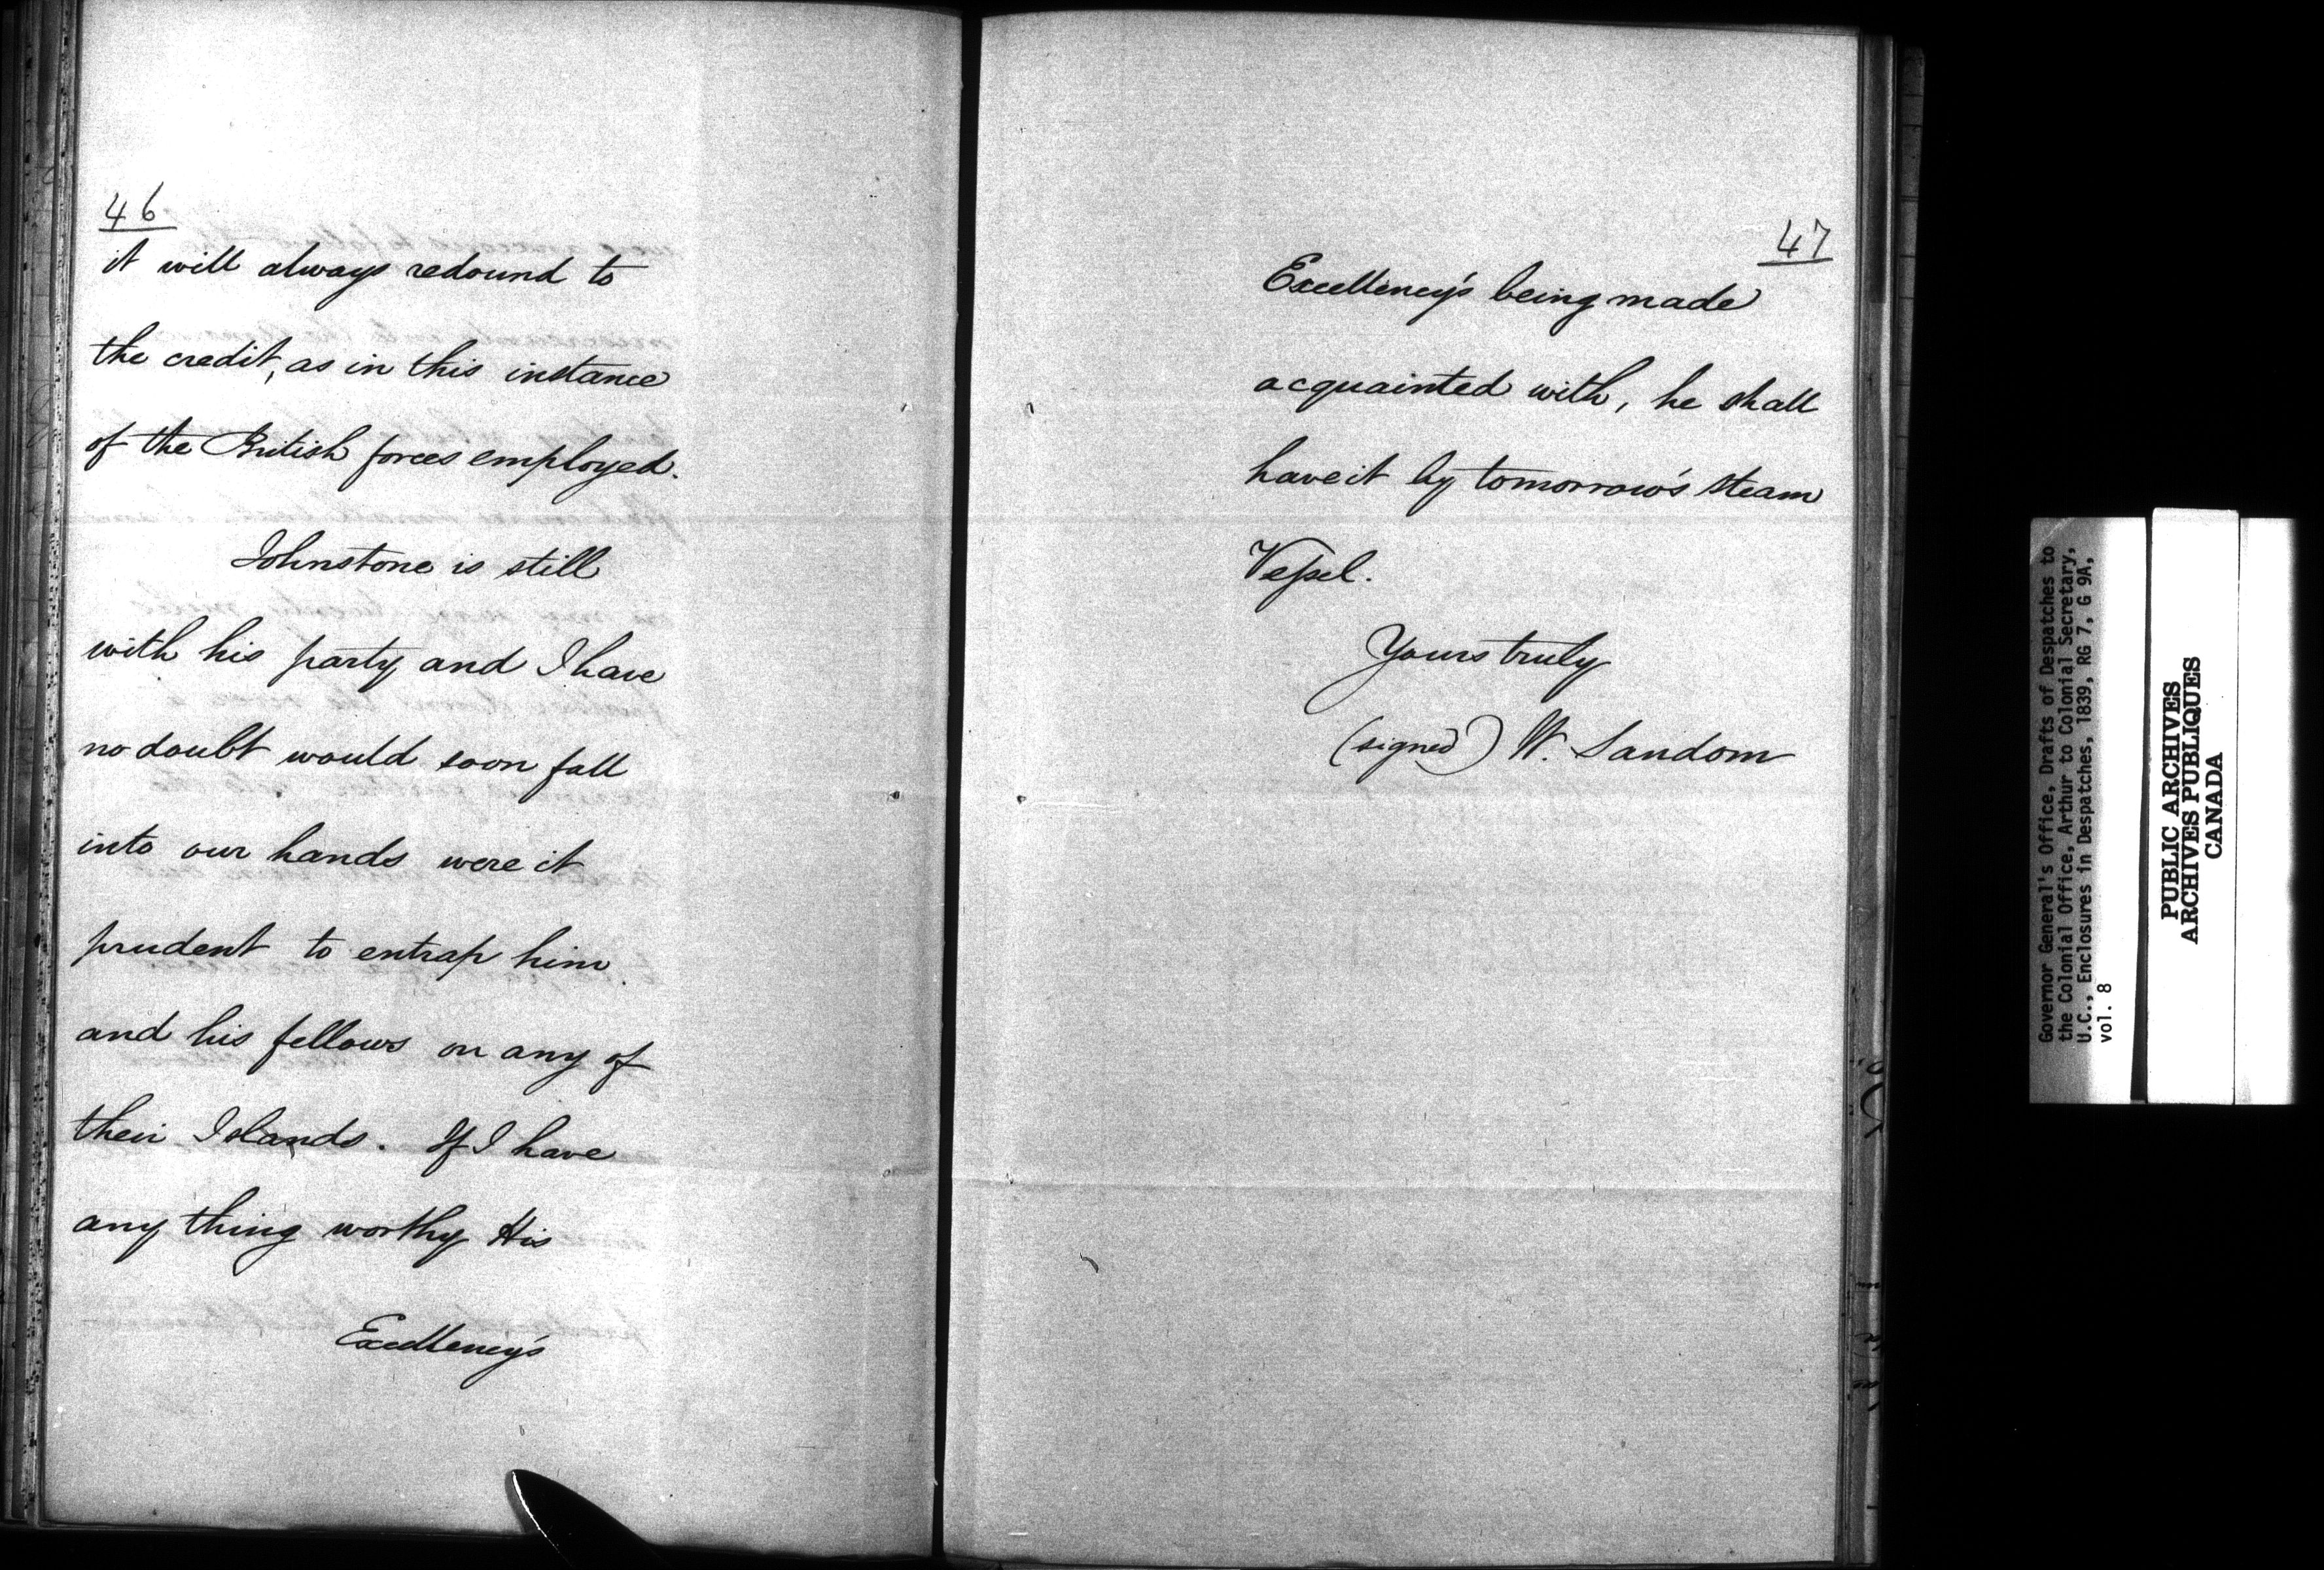 46
it will always redound to
the credit, as in this instance
of the British forces employed.
Johnstone is still
with his party and I have
no doubt would soon fall
into our hands were it
prudent to entrap him
and his fellows on any of
their Islands. If I have
any thing worthy His
Excellency's
47
Excellency's being made
acquainted with, he shall
have it by tomorrow's steam
Vessel.
Yours truly
(signed) W. Sandom
Governor General's Office, Drafts of Despatches to
the Colonial Office, Arthur to Colonial Secretary,
U.C., Enclosures in Despatches, 1839, RG 7, G 9A,
vol. 8
PUBLIC ARCHIVES
ARCHIVES PUBLIQUES
CANADA